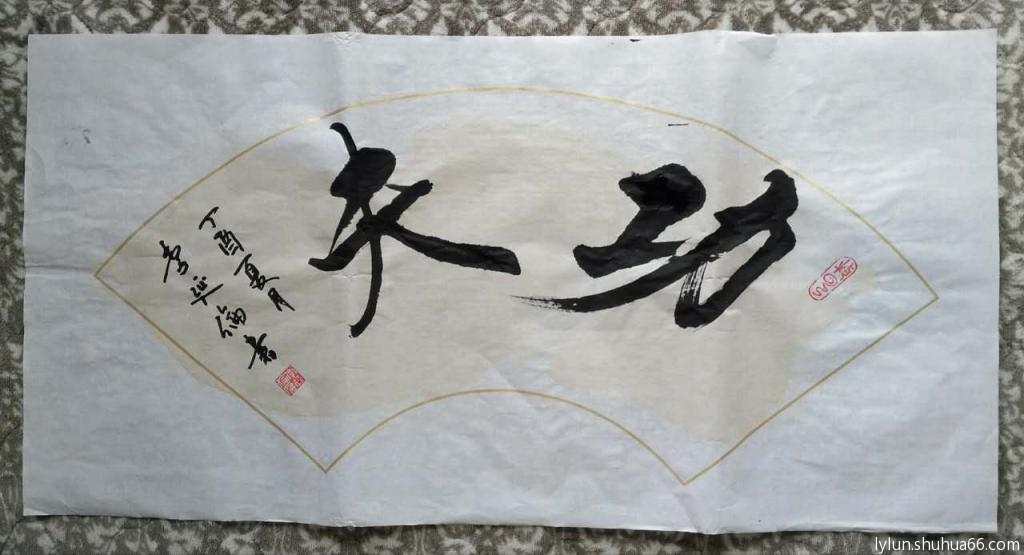 功夫
丁酉夏月
李延倫書
lylun.shuhua66.com